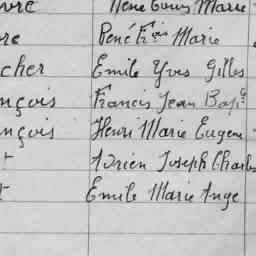 vre René Louis Marie
re René Frçois Marie
cher Emile Yves Gilles
nçois Francis Jean Bapt
nçois Henri Marie Eugene
t Adrien Joseph Charles
t Emile Marie Ange